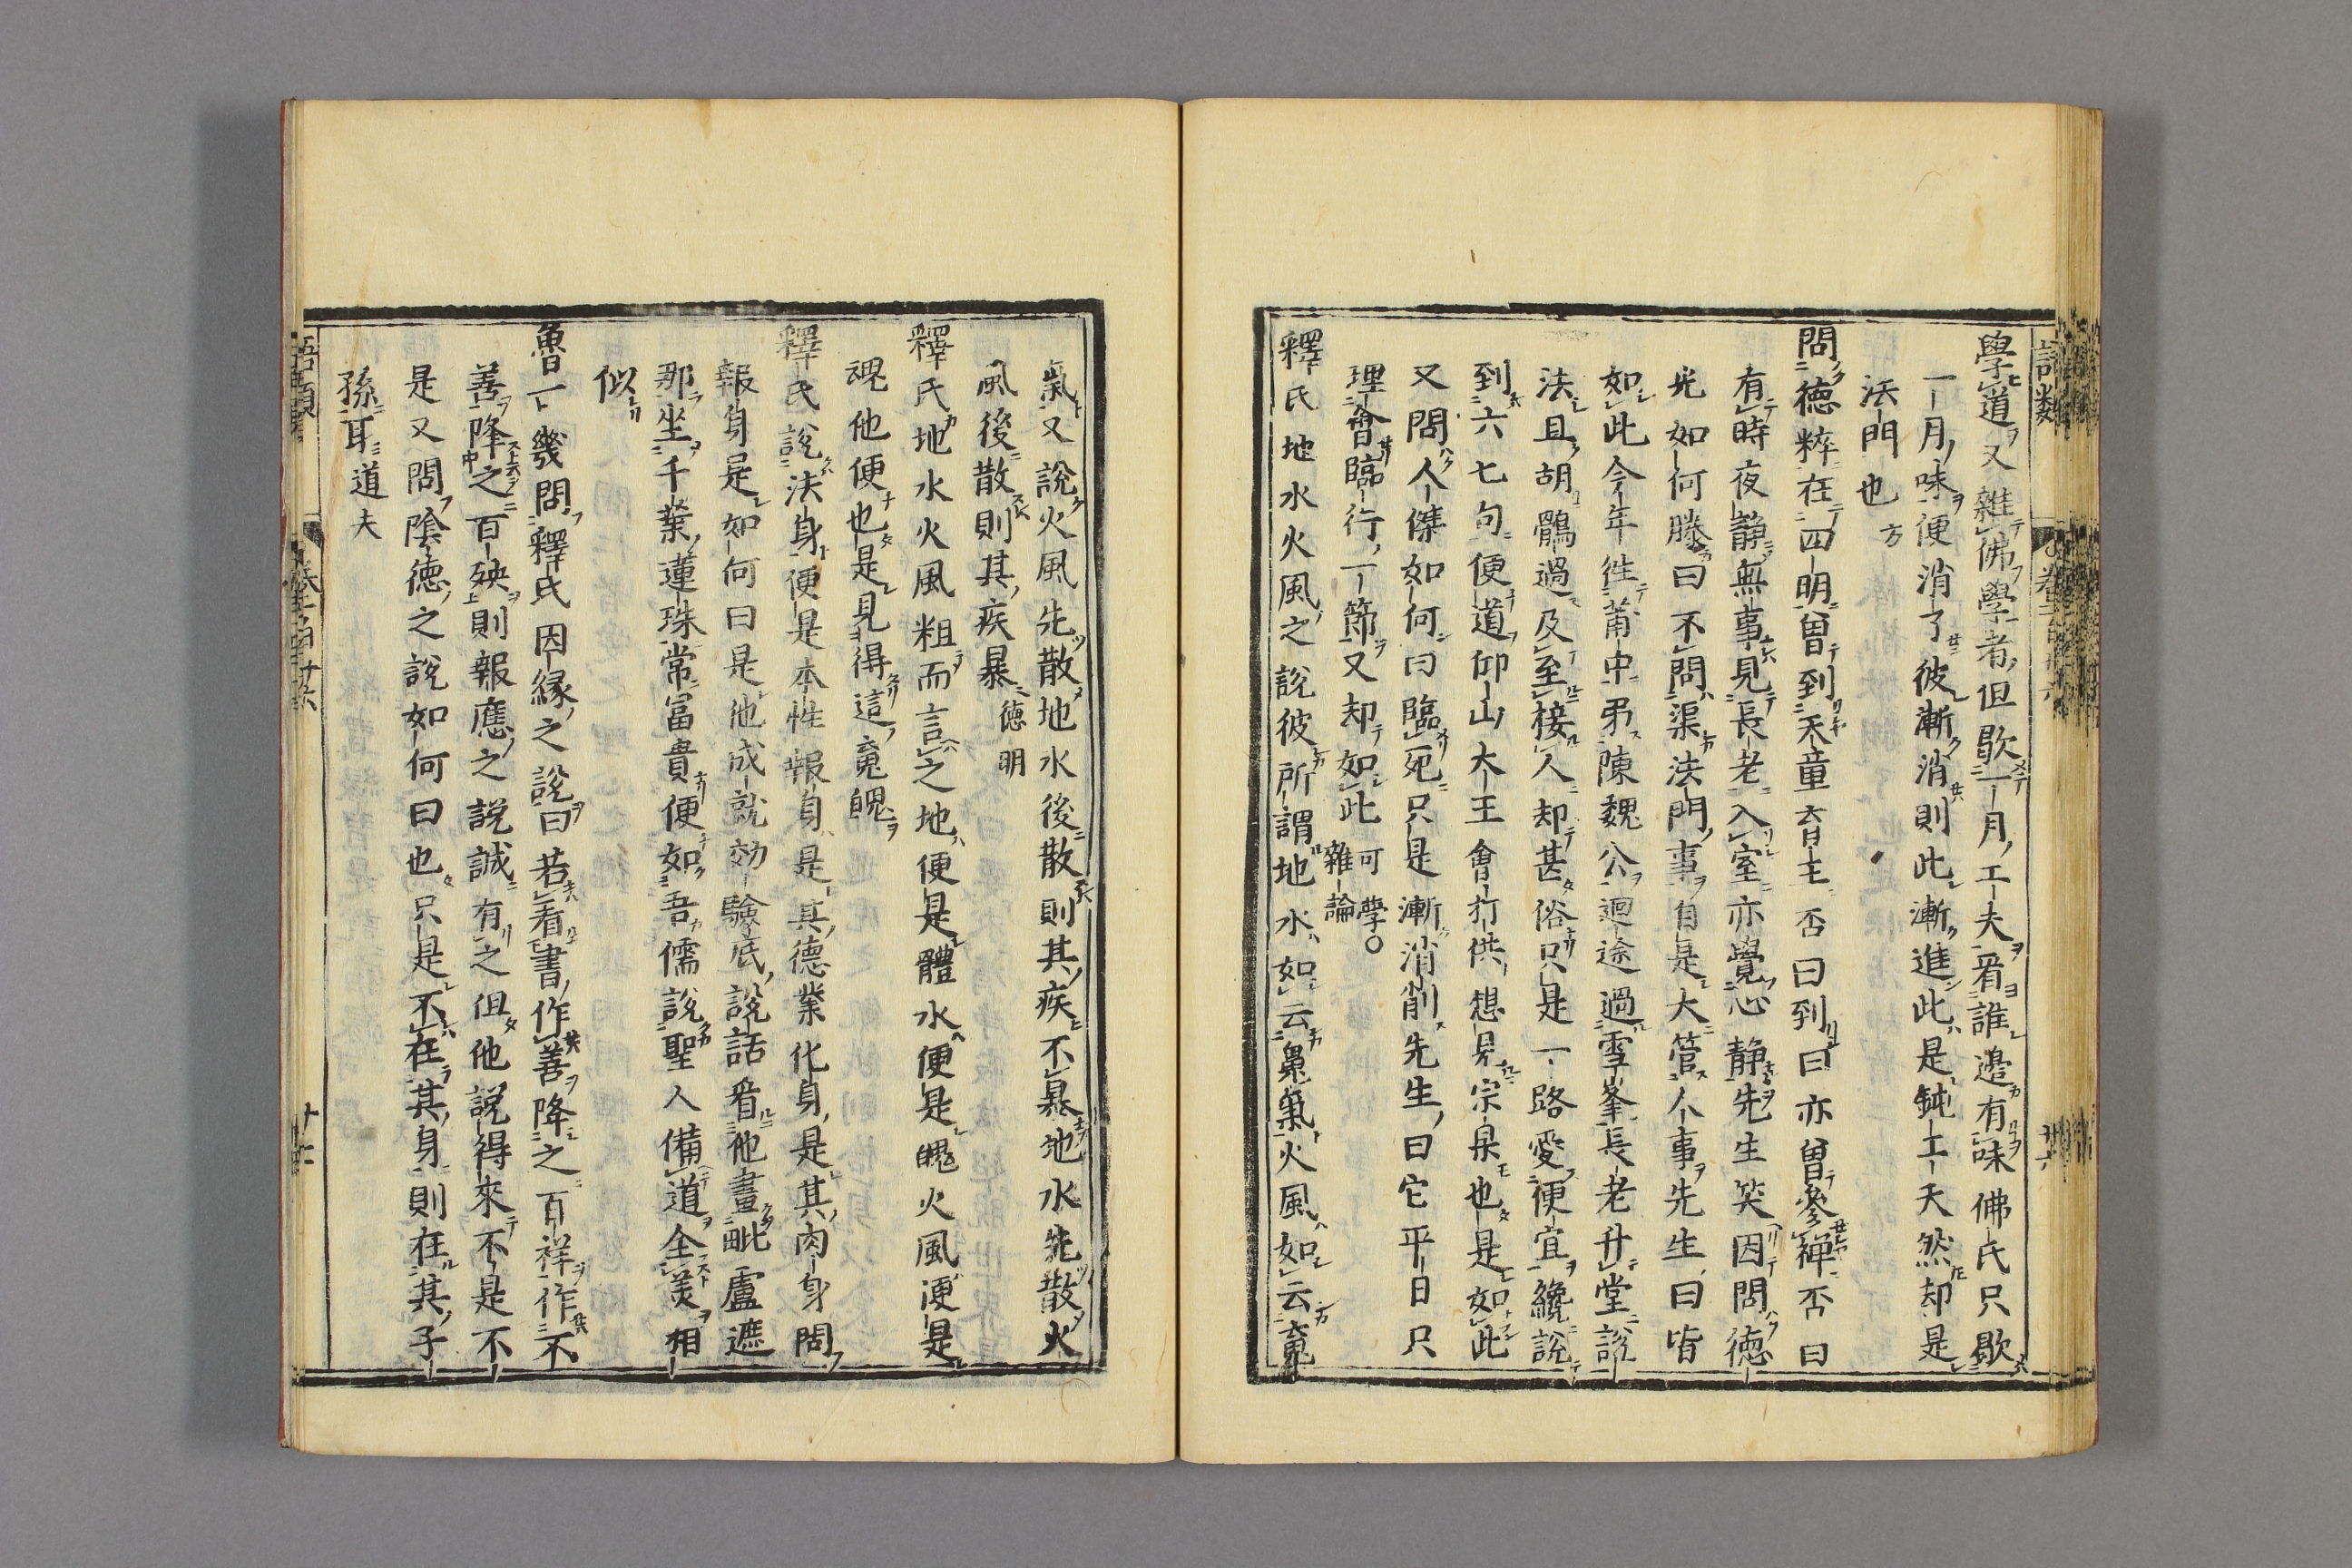 學道又雜佛學者但歇一月工夫看誰邊有味佛氏只歇
一月味便消了彼漸消則此漸進此是鈍工夫然却是
法門也方
問德粹在四明曾到天童育王否曰到曰亦曾參禪否曰
有時夜靜無事見長老入室亦覺心靜先生笑因問德
光如何滕曰不問渠法門事自是大管人事先生曰皆
如此今年往莆中弔陳魏公迴途過雪峯長老升堂說
法且胡鶻過及至接人却甚俗只是一路愛便宜纔說
到六七句便道仰山大王會打供想見宗杲也是如此
又問人傑如何曰臨死只是漸消削先生曰它平日只
理會臨行一節又却如此可學○雜論
釋氏地水火風之說彼所謂地水如云魄氣火風如云魂
氣又說火風先散地水後散則其疾不暴地水先散火
風後散則其疾暴德明
釋氏地水火風粗而言之地便是體水便是魄火風便是
魂他便也是見得這魂魄
釋氏說法身便是本性報身是其德業化身是其肉身問
報身是如何曰是他成就効驗底說話看他畫毗盧遮
那坐千葉蓮珠常富貴便如吾儒說聖人備道全美相
似
魯一幾問釋氏因緣之說曰若看書作善降之百祥作不
善降之百殃則報應之說誠有之但他說得來不是不
是又問陰德之說如何曰也只是不在其身則在其子
孫耳道夫
語類
卷百廿六
廿七